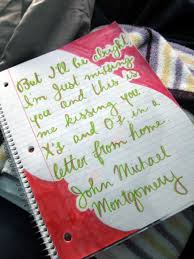 But I'll be alright
I'm Just missing
you and this is
me kissing you
X's and O's in a
letter from home
John Michael
Montgomery